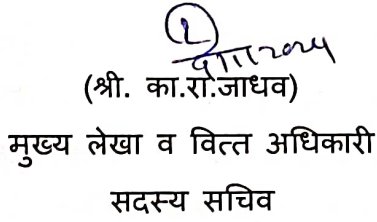 (श्री. का.रा.जाधव)
मुख्य लेखा व वित्त अधिकारी
सदस्य सचिव